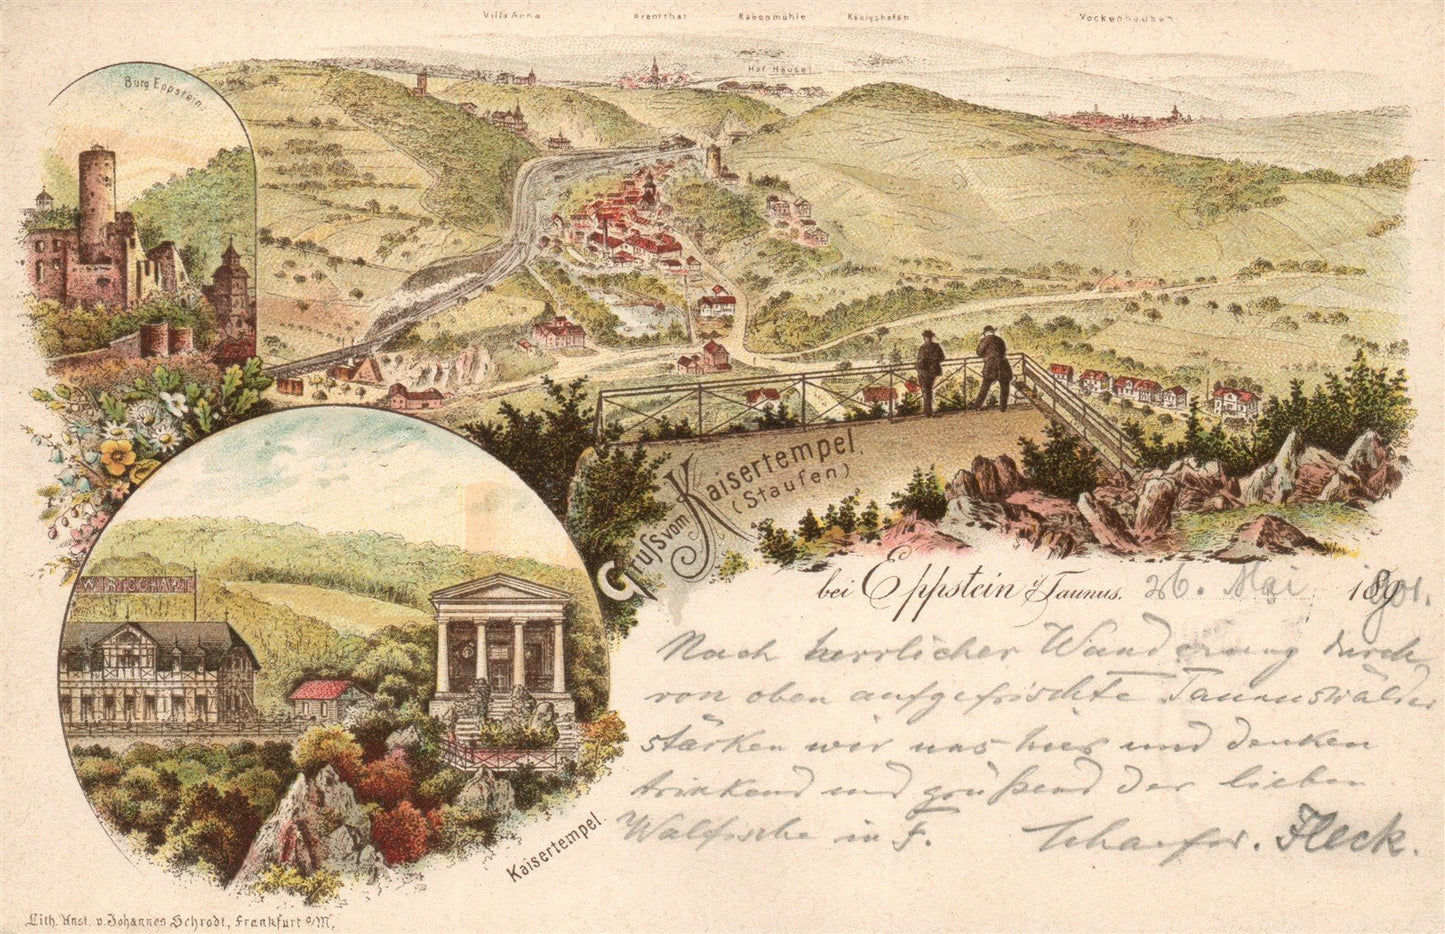 Villa Anna Bremthal Rabenmühle Königshofen Vockenhausen
Hof Häusel
Burg Eppstein.
Gruſs vom Kaisertempel
(Staufen)
bei Eppstein i/Taunus. 26. Mai 1901.
WIRTSCHAFT
Nach herrlicher Wanderung durch
von oben aufgefrischte Taunuswälder
stärken wir uns hier und denken
trinkend und grüßend der lieben
Walfische in F. Schaefer. Fleck.
Kaisertempel.
Lith. Anst. v. Johannes Schrodt, Frankfurt a/M,